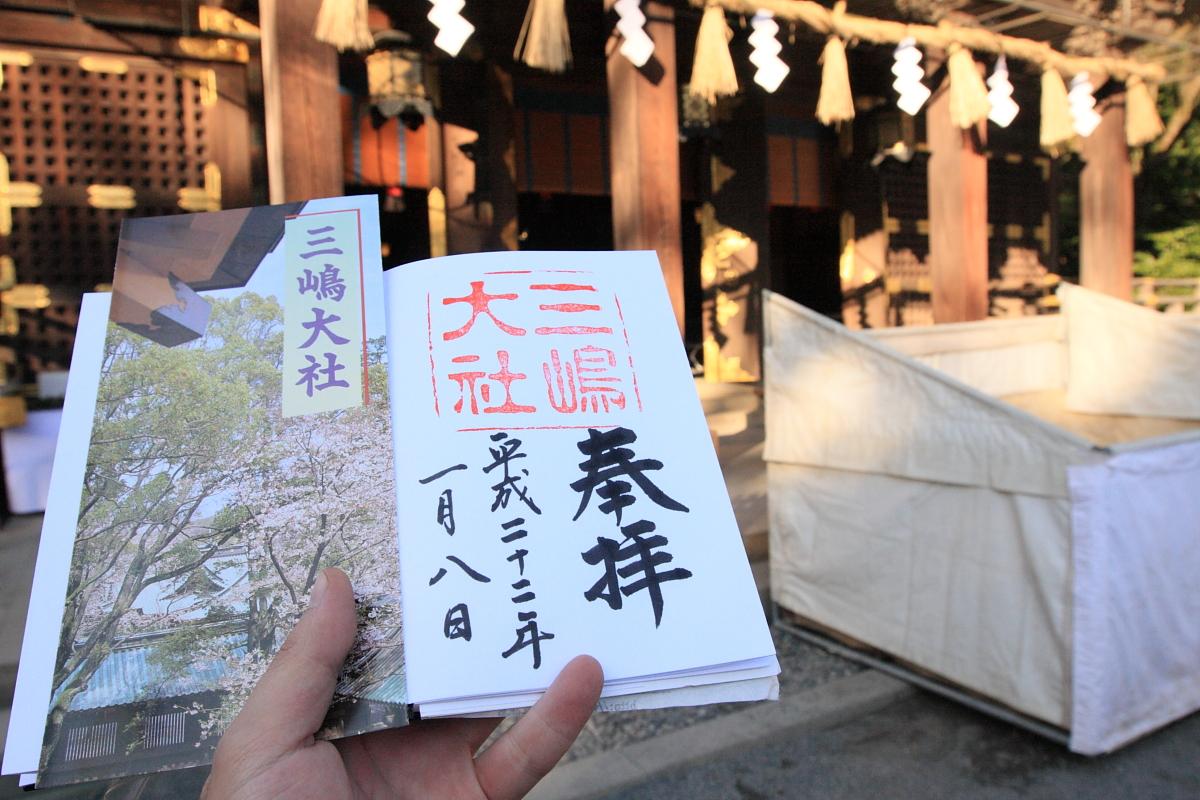 三嶋大社
三嶋
大社
奉拝
平成二十二年
一月八日